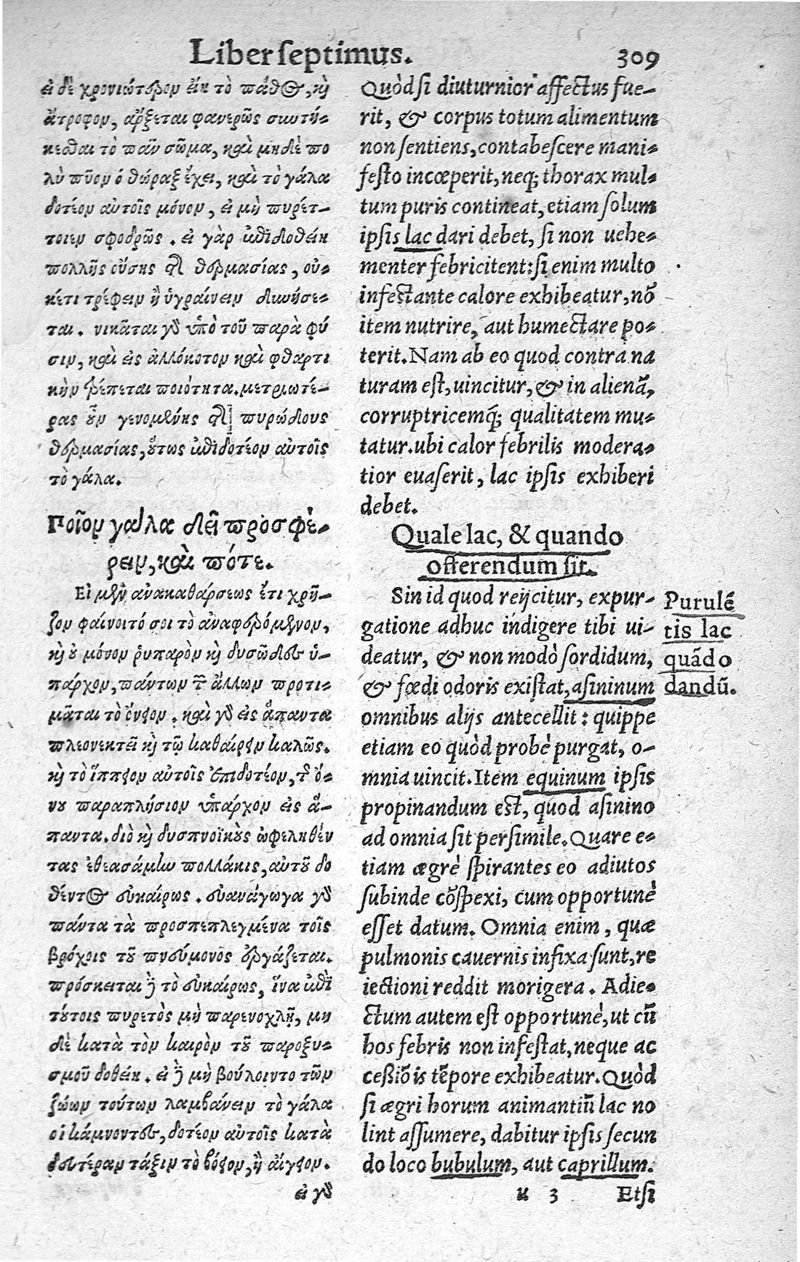 Liber septimus. 309
εἰ δὲ χρονιώτερον εἴη τὸ πάθος, καὶ
ἄτροφον, ἄρξεται φανερῶς συντή-
κεσθαι τὸ πᾶν σῶμα, καὶ μηδὲ πο
λὺ πῦον ὁ θώραξ ἔχει, καὶ τὸ γάλα
δοτέον αὐτοῖς μόνον, εἰ μὴ πυρέτ-
τοιεν σφοδρῶς. εἰ γὰρ ἐπιδοθείη
πολλῆς οὔσης τῆς θερμασίας, οὐ-
κέτι τρέφειν ἢ ὑγραίνειν δυνήσε-
ται. νικᾶται γὸ ὑπὸ τοῦ παρὰ φύ
σιν, καὶ εἰς ἀλλόκοτον καὶ φθαρτι
κὴν τρέπεται ποιότητα. μετριωτέ-
ρας οὖν γενομένης τῆς πυρώδους
θερμασίας, οὕτως ἐπιδοτέον αὐτοῖς
τὸ γάλα.
Ποῖον γάλα δεῖ προσφέ-
ρειν, καὶ πότε.
Εἰ μὲν ἀνακαθάρσεως ἔτι χρῄ-
ζον φαίνοιτό σοι τὸ ἀναφερόμενον,
καὶ οὐ μόνον ῥυπαρὸν καὶ δυσῶδες ὑ-
πάρχον, πάντων τῶν ἄλλων προτι-
μᾶται τὸ ὄνειον. καὶ γὸ εἰς ἅπαντα
πλεονεκτεῖ καὶ τῷ καθαίρειν καλῶς.
καὶ τὸ ἵππειον αὐτοῖς ἐπιδοτέον, τῷ ὀ-
νου παραπλήσιον ὑπάρχον εἰς ἅ-
παντα. διὸ καὶ δυσπνοϊκοὺς ὠφεληθέν
τας ἐθεασάμην πολλάκις, αὐτοῦ δο
θέντος εὐκαίρως. εὐανάγωγα γὸ
πάντα τὰ προσπεπλεγμένα τοῖς
βρόχοις τοῦ πνεύμονος ἐργάζεται.
πρόσκειται δὲ τὸ εὐκαίρως, ἵνα ἐπὶ
τούτοις πυρετὸς μὴ παρενοχλῇ, μη
δὲ κατὰ τὸν καιρὸν τοῦ παροξυ-
σμοῦ δοθείη. εἰ δὲ μὴ βούλοιντο τῶν
ζώων τούτων λαμβάνειν τὸ γάλα
οἱ κάμνοντες, δοτέον αὐτοῖς κατὰ
δευτέραν τάξιν τὸ βόειον, ἢ αἴγειον.
εἰ γὸ
Quòd si diuturnior affectus fue-
rit, & corpus totum alimentum
non sentiens, contabescere mani-
festo incœperit, neq; thorax mul-
tum puris contineat, etiam solum
ipsis lac dari debet, si non uehe-
menter febricitent: si enim multo
infestante calore exhibeatur, nõ
item nutrire, aut humectare po-
terit. Nam ab eo quod contra na
turam est, uincitur, & in alienã,
corruptricemq; qualitatem mu-
tatur. ubi calor febrilis modera-
tior euaserit, lac ipsis exhiberi
debet.
Quale lac, & quando
offerendum sit.
Sin id quod reijcitur, expur-
gatione adhuc indigere tibi ui-
deatur, & non modò sordidum,
& fœdi odoris existat, asininum
omnibus alijs antecellit: quippe
etiam eo quòd probè purgat, o-
mnia uincit. Item equinum ipsis
propinandum est, quod asinino
ad omnia sit persimile. Quare e-
tiam ægrè spirantes eo adiutos
subinde cõspexi, cum opportunè
esset datum. Omnia enim, quæ
pulmonis cauernis infixa sunt, re
iectioni reddit morigera. Adie-
ctum autem est opportunè, ut cũ
hos febris non infestat, neque ac
cessiõis tẽpore exhibeatur. Quòd
si ægri horum animantiũ lac no
lint assumere, dabitur ipsis secun
do loco bubulum, aut caprillum.
u 3 Etsi
Purulẽ
tis lac
quãdo
dandũ.